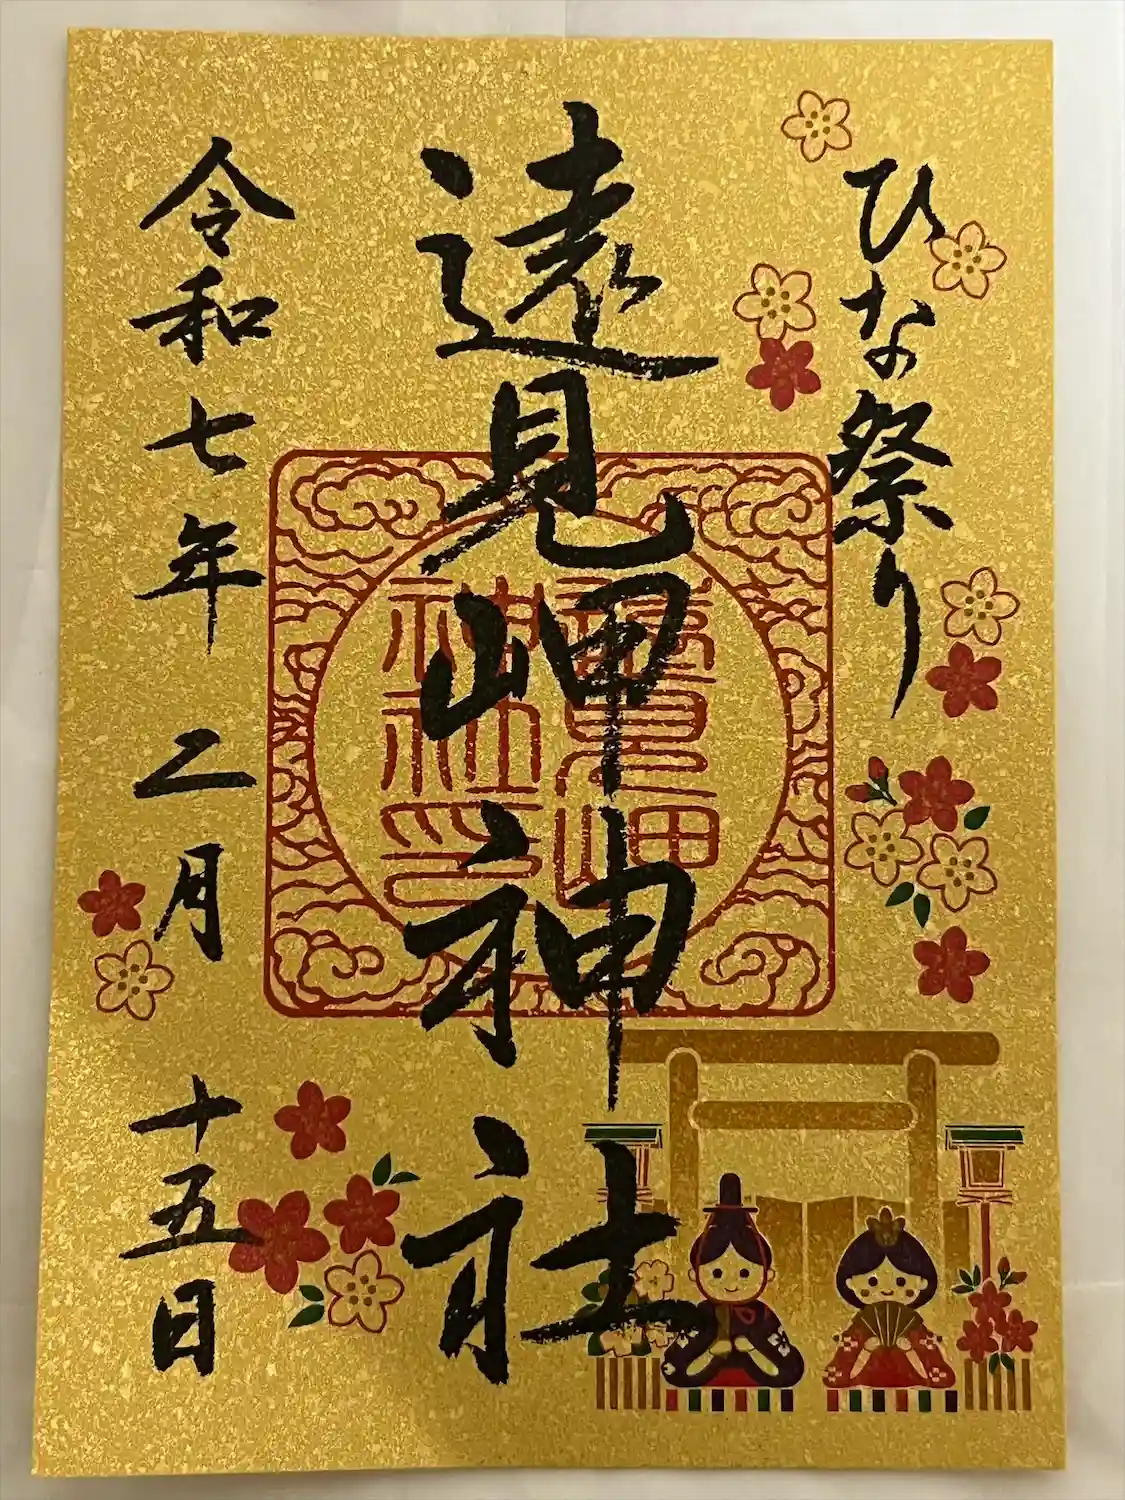 ひな祭り
遠見岬神社
遠見岬
神社印
令和七年二月十五日